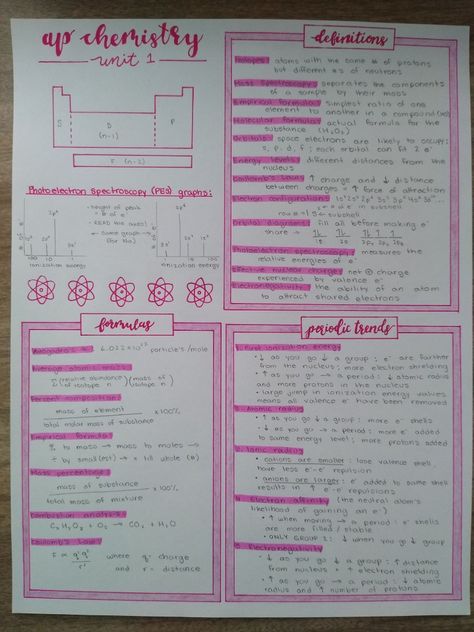 ap chemistry
unit 1
S
D
(n-1)
P
F (n-2)
Photoelectron spectroscopy (PES) graphs:
height of peak
= # of e⁻
(READ the axes!)
← same graph →
(for Na)
ionization energy
ionization energy
definitions
Isotopes: atoms with the same # of protons
but different #s of neutrons
Mass spectroscopy: separates the components
of a sample by their mass
Empirical formula: simplest ratio of one
element to another in a compound (HO)
Molecular formula: actual formula for the
substance (H₂O₂)
Orbitals: space electrons are likely to occupy;
s, p, d, f; each orbital can fit 2 e⁻
Energy levels: different distances from the
nucleus
Coulomb's Law: ↑ charge and ↓ distance
between charges = ↑ force of attraction
Electron configurations: 1s² 2s² 2p⁶ 3s²
# of e⁻ in subshell
row # → subshell
Orbital diagrams: fill all before making e⁻
share
1s 2s 2p₁ 2p₂ 2p₃
Photoelectron spectroscopy: measures the
relative energies of e⁻
Effective nuclear charge: net ⊕ charge
experienced by valence e⁻
Electronegativity: the ability of an atom
to attract shared electrons
formulas
Avogadro's #: 6.022×10²³ particles/mole
Average atomic mass:
Σ (relative abundance of isotope n)(mass of isotope n)
Percent composition:
mass of element
x100%
total molar mass of substance
Empirical formula:
% to mass → mass to moles →
÷ by small(est) → x till whole (#)
Mass percentage:
mass of substance
x100%
total mass of mixture
Combustion analysis:
CₓHᵧO₂ + O₂ → CO₂ + H₂O
Coulomb's Law:
F ∝ q'q²/r² where q = charge
and r = distance
periodic trends
1. First ionization energy
• ↓ as you go ↓ a group: e⁻ are farther
from the nucleus; more electron shielding
• ↑ as you go → a period: ↓ atomic radius
and more protons in the nucleus
• large jump in ionization energy values
means all valence e⁻ have been removed
2. Atomic radius
• ↑ as you go ↓ a group: more e⁻ shells
• ↓ as you go → a period: e⁻ added
to same energy level; more protons added
3. Ionic radius
• cations are smaller: lose valence shell
have less e⁻-e⁻ repulsion
• anions are larger: e⁻ added to same shell
results in ↑ e⁻-e⁻ repulsions
4. Electron affinity (the neutral atom's
likelihood of gaining an e⁻)
• ↑ when moving → a period: e⁻ shells
are more filled/stable
• ONLY GROUP 2: ↓ when you go ↓ group
5. Electronegativity
• ↓ as you go ↓ a group: ↑ distance
from nucleus = ↑ electron shielding
• ↑ as you go → a period: ↓ atomic
radius and ↑ number of protons